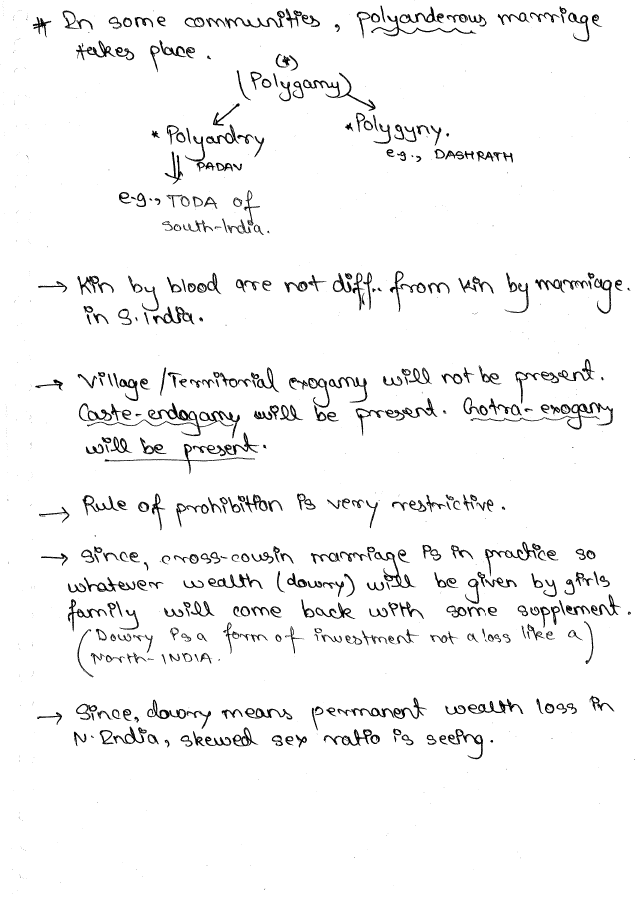 * In some communities, polyanderous marriage
takes place.
(*)
(Polygamy)
* Polyandry
* Polygyny.
PADAV
e.g., DASHRATH
e.g., TODA of
South-India.
→ Kin by blood are not diff. from kin by marriage.
in S. india.
→ Village/Territorial exogamy will not be present.
Caste-endogamy will be present. Gotra-exogamy
will be present.
→ Rule of prohibition is very restrictive.
→ Since, cross-cousin marriage is in practice so
whatever wealth (dowry) will be given by girls
family will come back with some supplement.
(Dowry is a form of investment not a loss like a
North-INDIA.)
→ Since, dowry means permanent wealth loss in
N. India, skewed sex ratio is seeing.